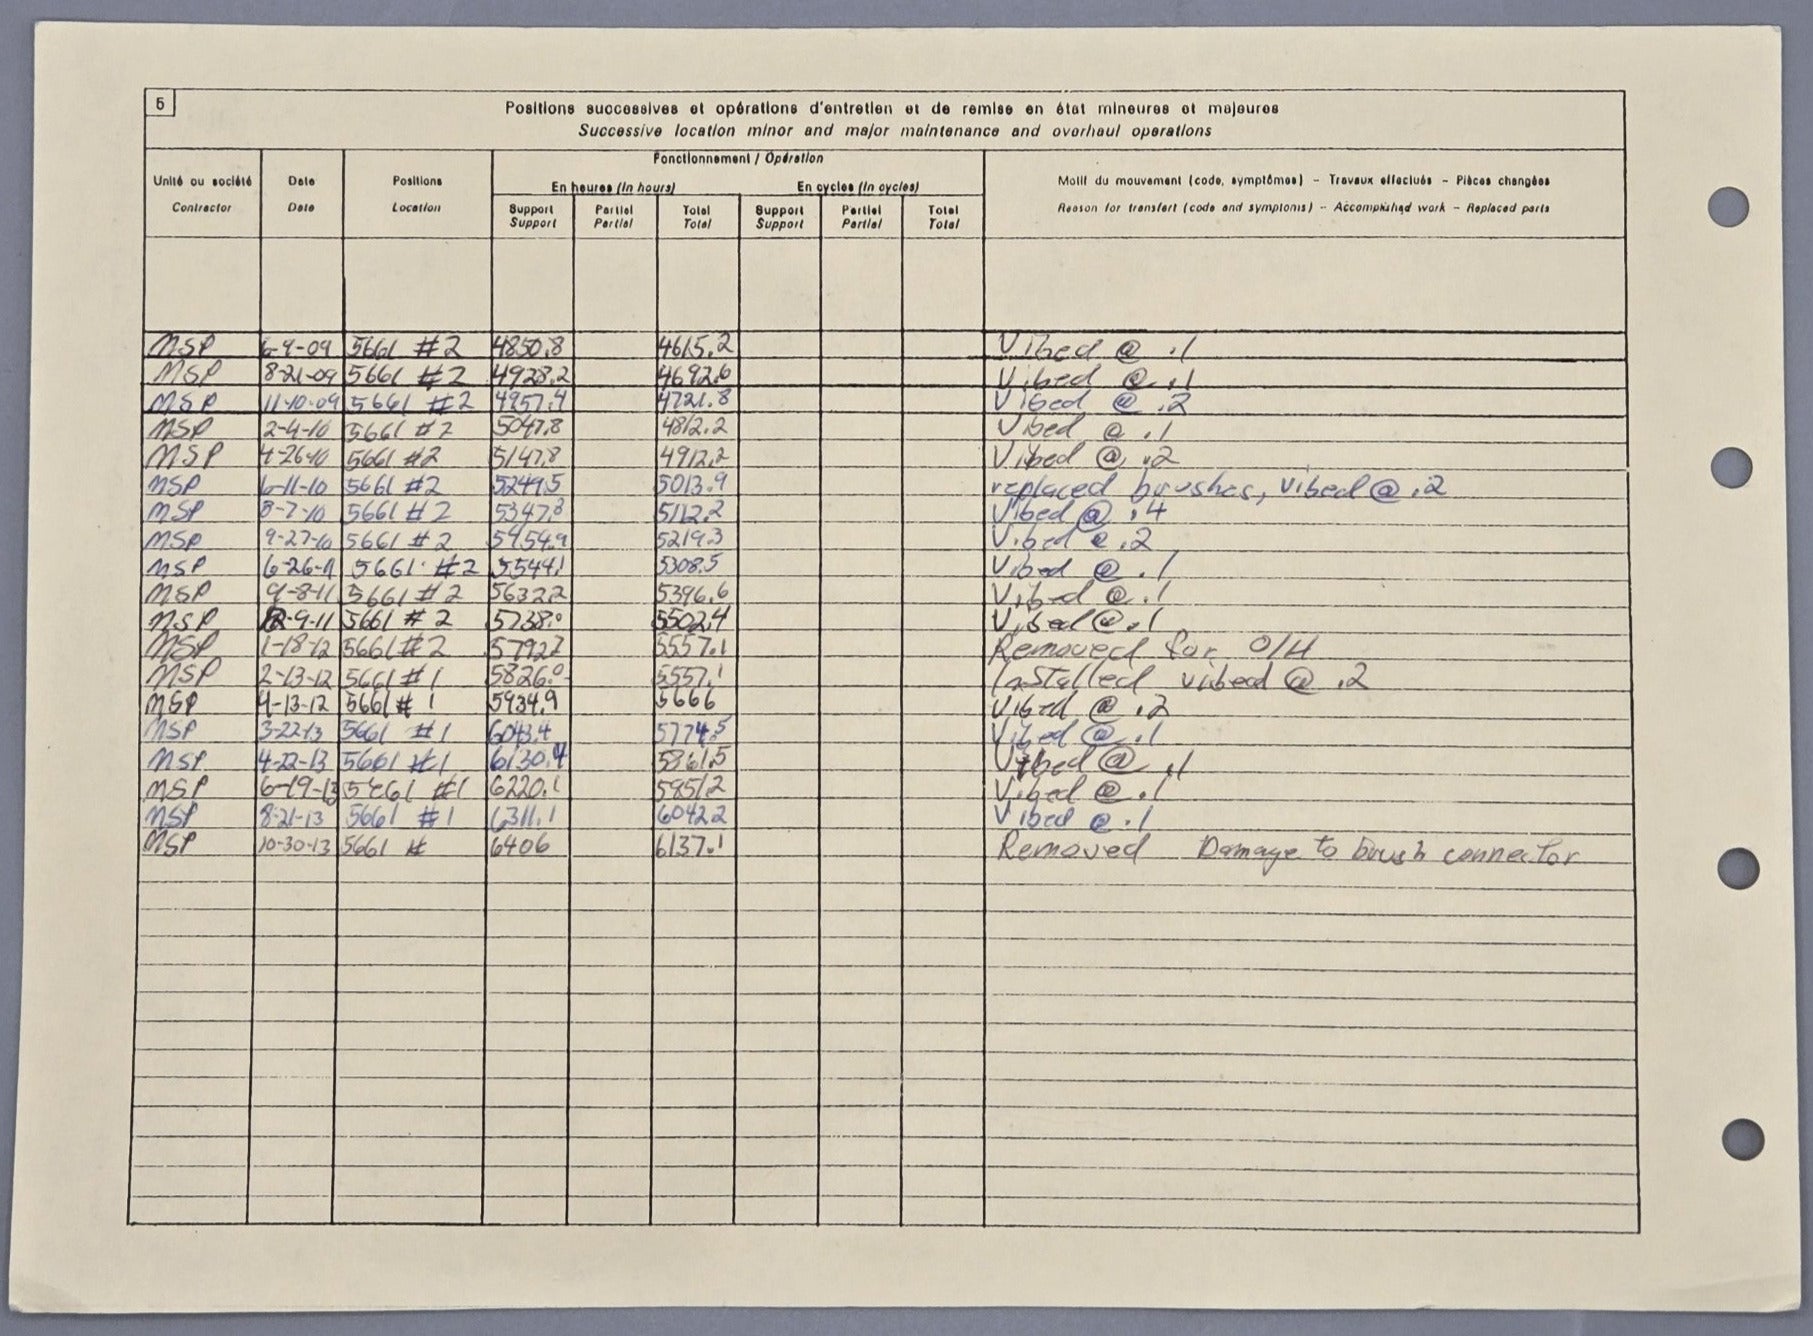 5
Positions successives et opérations d'entretien et de remise en état mineures et majeures
Successive location minor and major maintenance and overhaul operations
Unité ou société
Contractor
Date
Date
Positions
Location
Fonctionnement / Opération
En heures (In hours)
En cycles (In cycles)
Support
Support
Partiel
Partial
Total
Total
Support
Support
Partiel
Partial
Total
Total
Motif du mouvement (code, symptômes) – Travaux effectués – Pièces changées
Reason for transfert (code and symptoms) – Accomplished work – Replaced parts
MSP 6-9-09 5661 #2 4850.8 4615.2 Vibed @ .1
MSP 8-21-09 5661 #2 4928.2 4692.6 Vibed @ .1
MSP 11-10-09 5661 #2 4957.4 4721.8 Vibed @ .2
MSP 2-4-10 5661 #2 5047.8 4812.2 Vibed @ .1
MSP 4-26-10 5661 #2 5147.8 4912.2 Vibed @ .2
MSP 6-11-10 5661 #2 5249.5 5013.9 replaced brushes, Vibed @ .2
MSP 8-7-10 5661 #2 5347.8 5112.2 Vibed @ .4
MSP 9-27-10 5661 #2 5454.9 5219.3 Vibed @ .2
MSP 6-26-11 5661 #2 5544.1 5308.5 Vibed @ .1
MSP 9-8-11 5661 #2 5632.2 5396.6 Vibed @ .1
MSP 9-11 5661 #2 5738.0 5502.4 Vibed @ .1
MSP 1-18-12 5661 #2 5792.7 5557.1 Removed for O/H
MSP 2-13-12 5661 #1 5826.0 5557.1 Installed vibed @ .2
MSP 4-13-12 5661 # 1 5934.9 5666 Vibed @ .2
MSP 3-22-13 5661 #1 6043.4 5774.5 Vibed @ .1
MSP 4-22-13 5661 #1 6130.4 5861.5 Vibed @ .1
MSP 6-19-13 5661 #1 6220.1 5951.2 Vibed @ .1
MSP 8-21-13 5661 #1 6311.1 6042.2 Vibed @ .1
MSP 10-30-13 5661 # 6406 6137.1 Removed Damage to brush connector